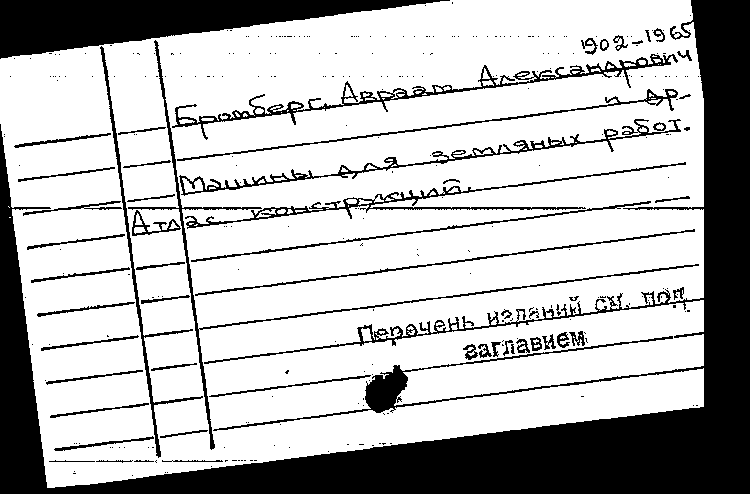 1902-1965
Бромберг, Авраам Александрович
и др.
Машины для земляных работ.
Атлас конструкций.
Перечень изданий см. под
заглавием